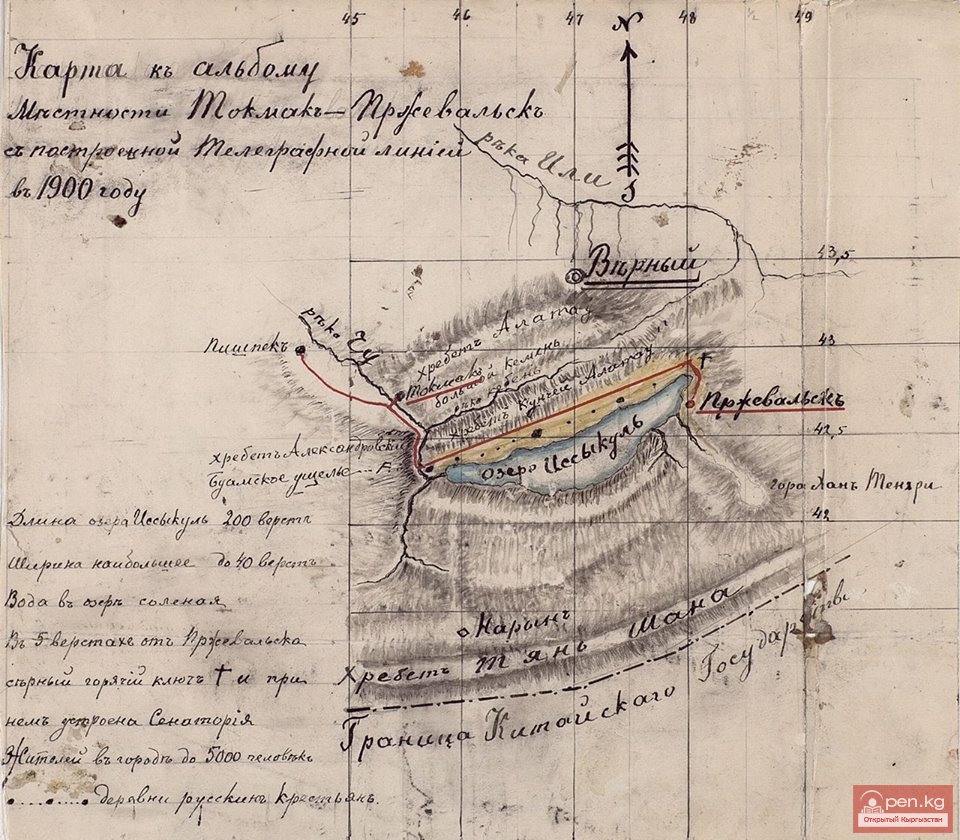 45 46 47 48 49
N
Карта къ альбому
Мѣстности Токмакъ–Пржевальскъ
съ построенной Телеграфной линіей
въ 1900 году
рѣка Или
S
Вѣрный
43,5
хребетъ Алатау
рѣка Чу
Пишпекъ
43
Токмакъ
большой кемень
хребетъ Кунгей Алатау
Пржевальскъ
42,5
хребетъ Александровскій
Буамское ущелье
озеро Иссыкуль
гора Ханъ Тенгри
42
Длина озера Иссыкуль 200 верстъ
Ширина наибольшее до 40 верстъ
Вода въ озерѣ соленая
Въ 5 верстахъ отъ Пржевальска
сѣрный горячій ключъ † и при
немъ устроена Сенаторія
Жителей въ городѣ до 5000 человѣкъ
деревни русскихъ крестьянъ.
Нарынъ
Хребетъ Тянь Шаня
Граница Китайскаго Государства
open.kg
Открытый Кыргызстан